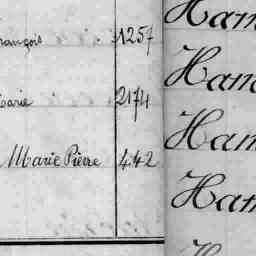 rançois 1257
Marie 2174
Marie Pierre 442
Ham
Ham
Ham
Ham